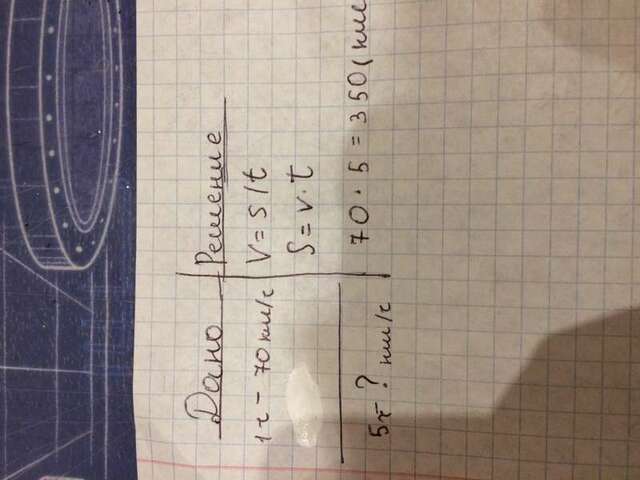 Дано
Решение
1ч - 70 км/ч
V = S/t
S = v · t
5ч - ? км/ч
70 · 5 = 350 (км